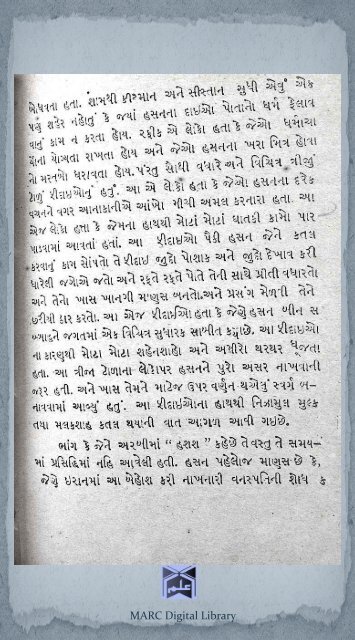 બોધવતા હતા. શામથી કીરમાન અને સીસ્તાન સુધી એવું એક
પણ શહેર નહોતું કે જ્યાં હસનના દાઇઓ પોતાનો ધર્મ ફેલાવ
વાનું કામ ન કરતા હોય. રફીક એ લોકો હતા કે જેઓ ધર્માચા
ર્યોની યોગ્યતા રાખતા હોય અને જેઓ હસનના ખરા મિત્ર હોવા
નો મરતબો ધરાવતા હોય. પરંતુ સૌથી વધારે અને વિચિત્ર ત્રીજું
ટોળું ફીદાઇઓનું હતું. આ એ લોકો હતા કે જેઓ હસનના દરેક
વચનને વગર આનાકાનીએ આંખો મીચી અમલ કરનારા હતા. આ
એજ લોકો હતા કે જેમના હાથથી મોટાં મોટાં ઘાતકી કામો પાર
પાડવામાં આવતાં હતાં. આ ફીદાઇઓ પૈકી હસન જેને કતલ
કરવાનું કામ સોંપતો તે ફીદાઇ જુદો પોશાક અને જુદો દેખાવ કરી
ધારેલી જગોએ જતો અને રફતે રફતે પોતે તેની સાથે પ્રીતી વધારતો
અને તેનો ખાસ ખાનગી માણુસ બનતો. અને પ્રસંગ મેળવી તેને
છરીથી ઠાર કરતો. આ એજ ફીદાઇઓ હતા કે જેણે હસન બીન સ
બ્બાહને જગતમાં એક વિચિત્ર સુધારક સાબીત કર્યો છે. આ ફીદાઇઓ
ના કારણથી મોટા મોટા શહેનશાહો અને અમીરો થરથર ધૂજતા
હતા. આ ત્રીજા ટોળાના લોકોપર હસનને પુરો અસર નાખવાની
જરૂર હતી. અને ખાસ તેમને માટેજ ઉપર વર્ણન થએલું સ્વર્ગ બ–
નાવવામાં આવ્યું હતું. આ ફીદાઇઓના હાથથી નિઝામુલ મુલ્ક
તથા મલકશાહ કતલ થયાની વાત આગળ આવી ગઇછે.
ભાંગ કે જેને અરબીમાં “ હશશ ” કહેછે તે વસ્તુ તે સમય–
માં પ્રસિદ્ધિમાં નહિ આવેલી હતી. હસન પહેલોજ માણુસ છે કે,
જેણે ઇરાનમાં આ બેહોશ કરી નાખનારી વનસ્પતિની શોધ ક
MARC Digital Library